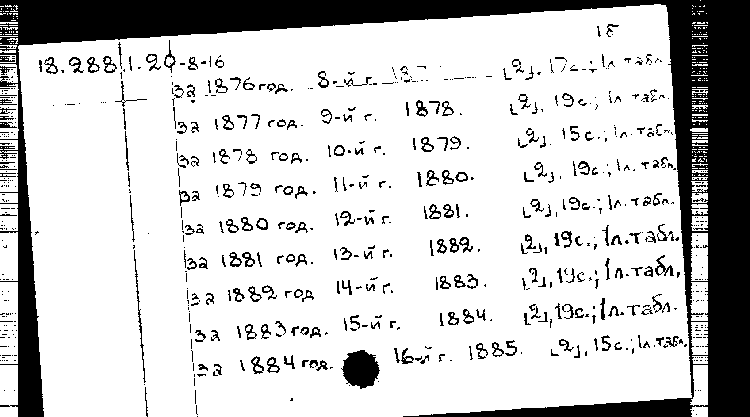 18
18.288.1.20-8-16
за 1876 год. 8-й г. 187 [2], 17с.; 1л табл.
за 1877 год. 9-й г. 1878. [2], 19с.; 1л табл.
за 1878 год. 10-й г. 1879. [2], 15с.; 1л. табл.
за 1879 год. 11-й г. 1880. [2], 19с.; 1л. табл.
за 1880 год. 12-й г. 1881. [2], 19с.; 1л. табл.
за 1881 год. 13-й г. 1882. [2], 19с.; 1л. табл.
за 1882 год 14-й г. 1883. [2], 19с.; 1л. табл.
за 1883 год. 15-й г. 1884. [2], 19с.; 1л. табл.
за 1884 год. 16-й г. 1885. [2], 15с.; 1л. табл.